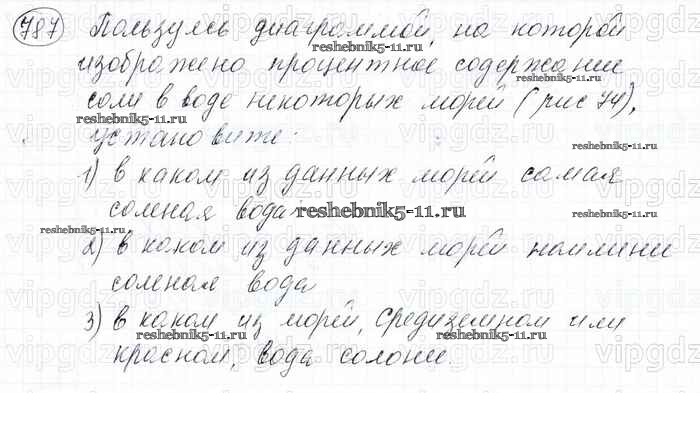 787 Пользуясь диаграммой, на которой
reshebnik5-11.ru
изображено процентное содержание
соли в воде некоторых морей (рис 74),
reshebnik5-11.ru
reshebnik5-11.ru
установите:
1) в каком из данных морей самая
соленая вода
reshebnik5-11.ru
reshebnik5-11.ru
reshebnik5-11.ru
2) в каком из данных морей наимение
соленая вода
3) в каком из морей, средиземном или
reshebnik5-11.ru
reshebnik5-11.ru
красном, вода солонее.
vipgdz.ru